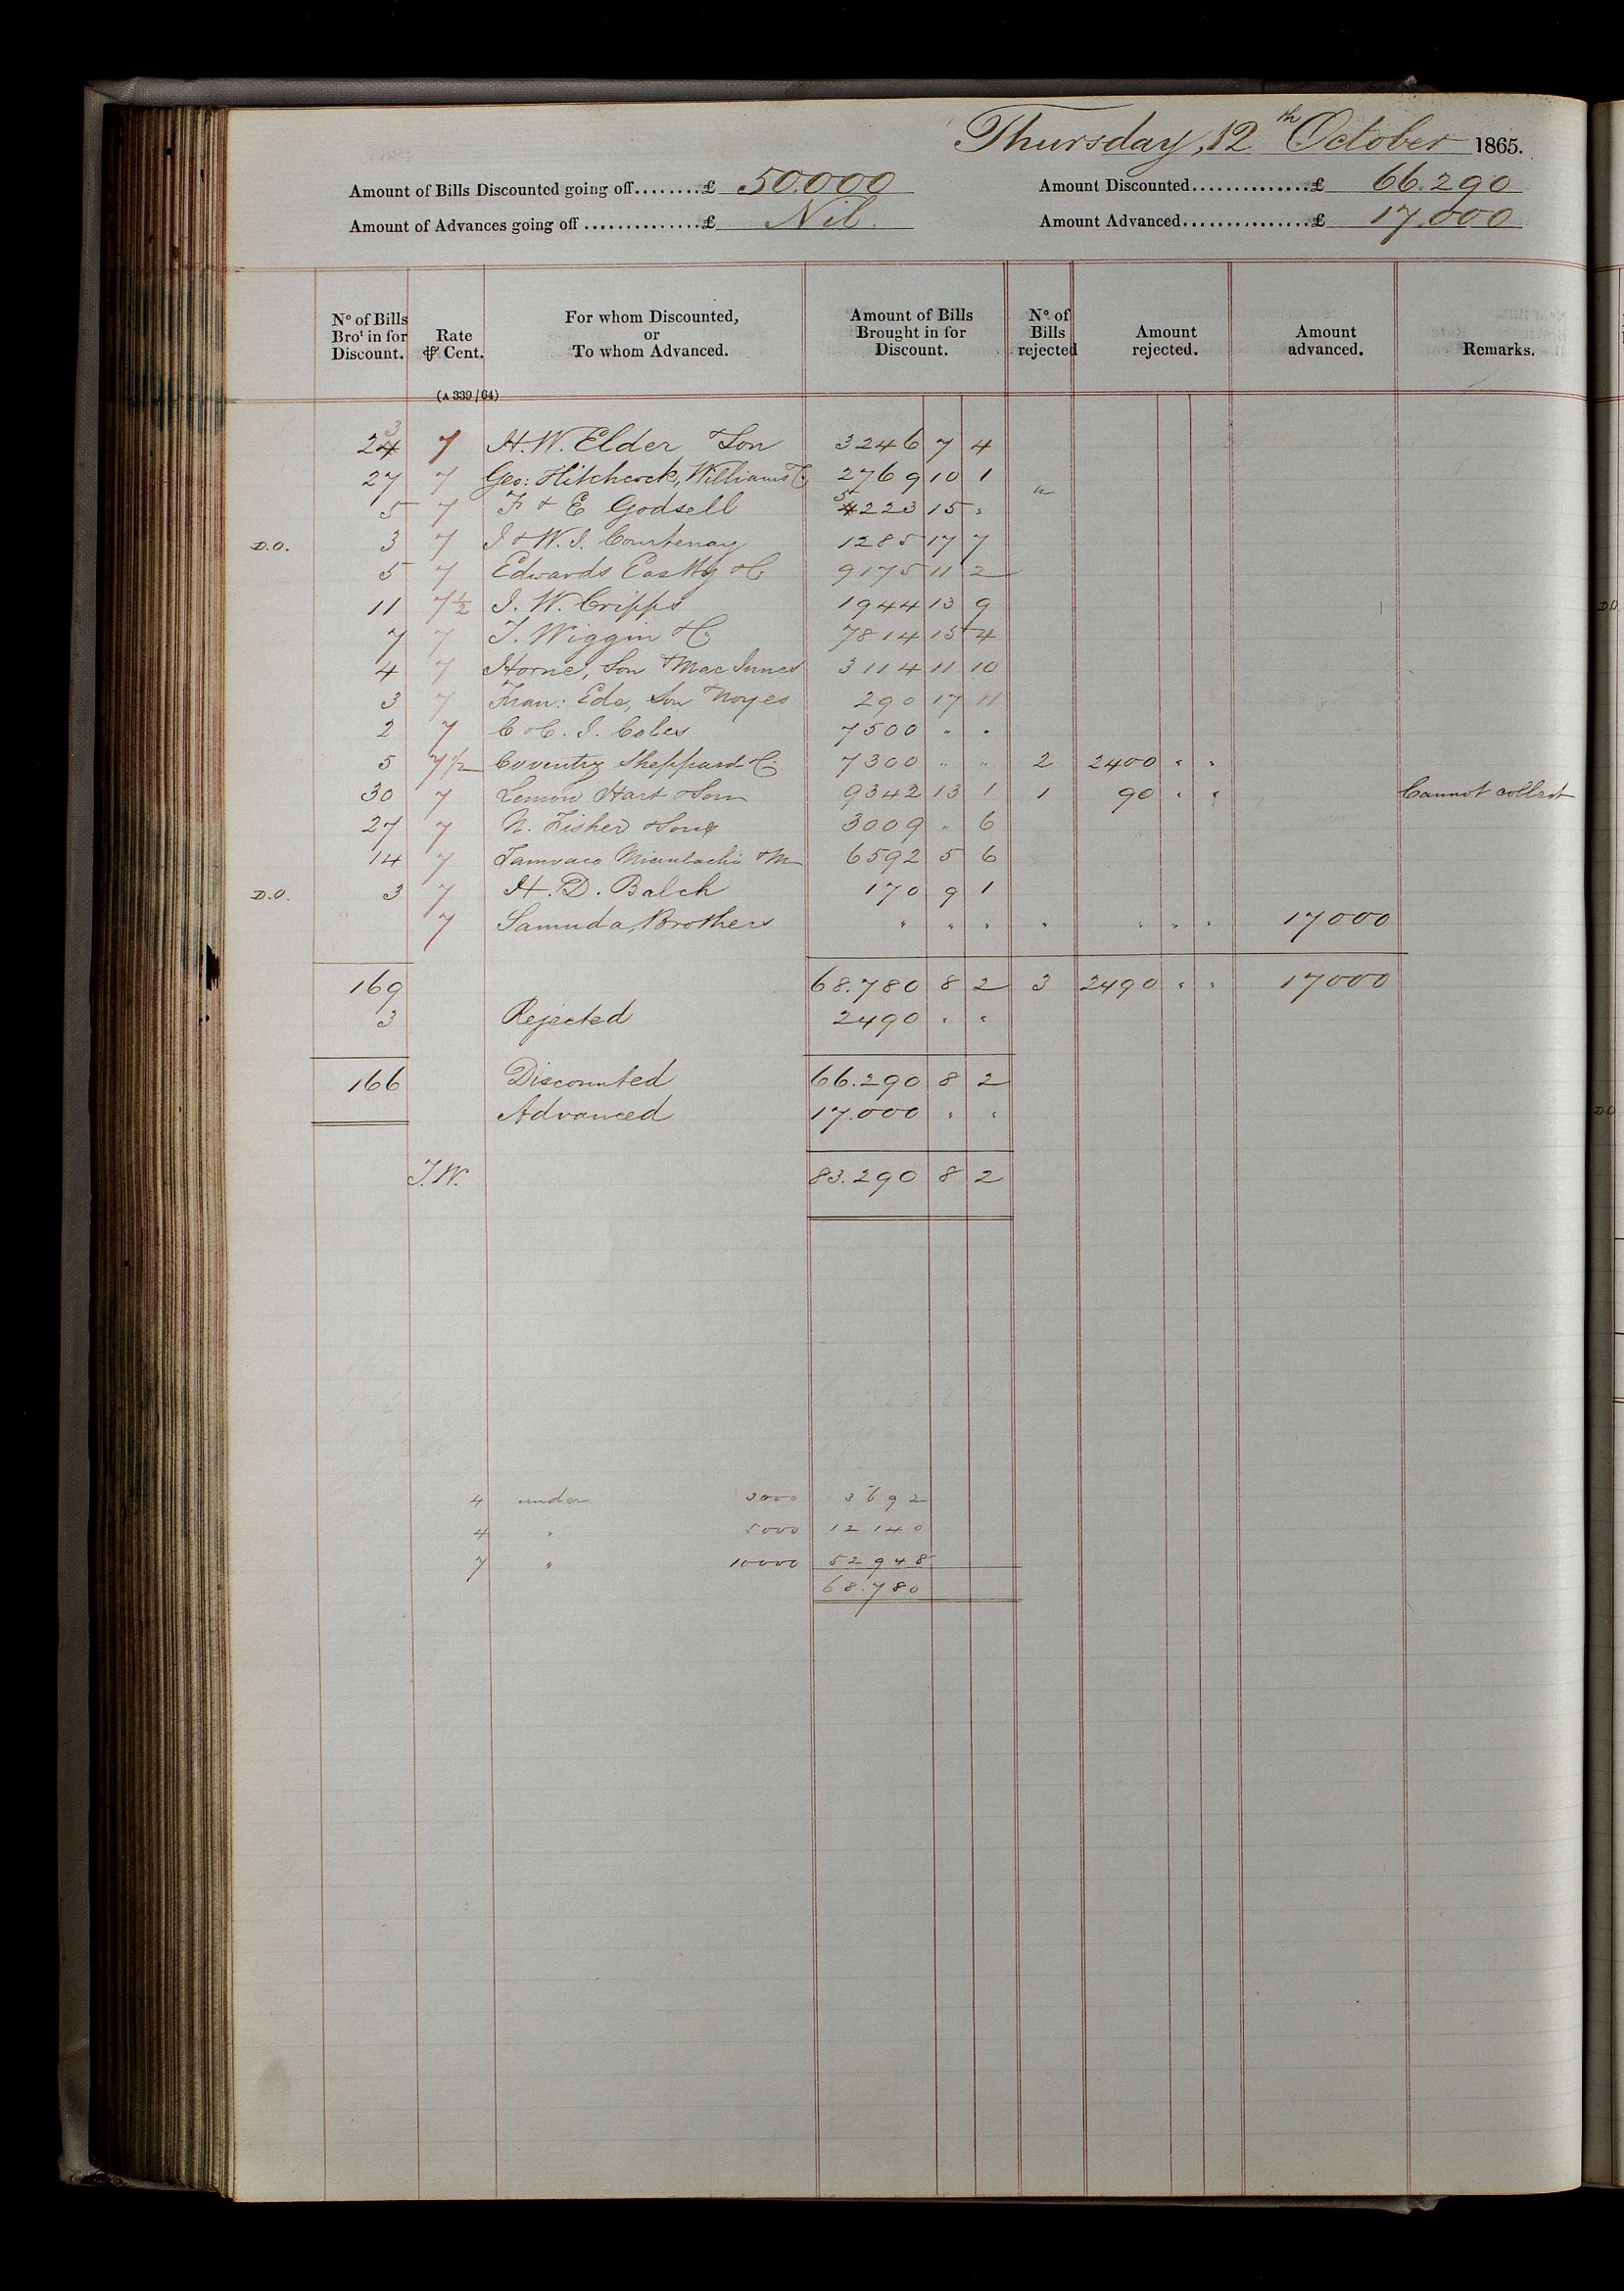 Thursday, 12th October 1865.
Amount of Bills Discounted going off........£ 50.000 Amount Discounted..............£ 66.290
Amount of Advances going off ..............£ Nil. Amount Advanced...............£ 17.000
No of Bills Brot in for Discount. Rate ⅌ Cent. For whom Discounted, or To whom Advanced. Amount of Bills Brought in for Discount. No of Bills rejected Amount rejected. Amount advanced. Remarks.
(A 339/64)
3
24 7 H. W. Elder & Son 3246 7 4
27 7 Geo: Hitchcock, Williams & Co 2769 10 1
5 7 F & E Godsell 5 4223 15 "
D.O. 3 7 J & W. J. Courtenay 1285 17 7
5 7 Edwards Eastty & Co 9175 11 2
11 7½ J. W. Cripps 1944 13 9
7 7 T. Wiggin & Co 7814 15 4
4 7 Horne, Son & MacInnes 3114 11 10
3 7 Fran: Ede, Son & Noyes 290 17 11
2 7 C & C. J. Coles 7500 " "
5 7½ Coventry Sheppard & Co 7300 " " 2 2400 " "
30 7 Lemon Hart & Son 9342 13 1 1 90 " " Cannot collect
27 7 N. Fisher & Sons 3009 " 6
14 7 6592 5 6
D.O. 3 7 H. D. Balch 170 9 1
7 Samuda, Brothers " " " " " " " 17000
169 68.780 8 2 3 2490 " " 17000
3 Rejected 2490 " "
166 Discounted 66.290 8 2
Advanced 17.000 " "
J.W. 83.290 8 2
4 under 3000 3692
4 " 5000 12140
7 " 10000 52948
68.780